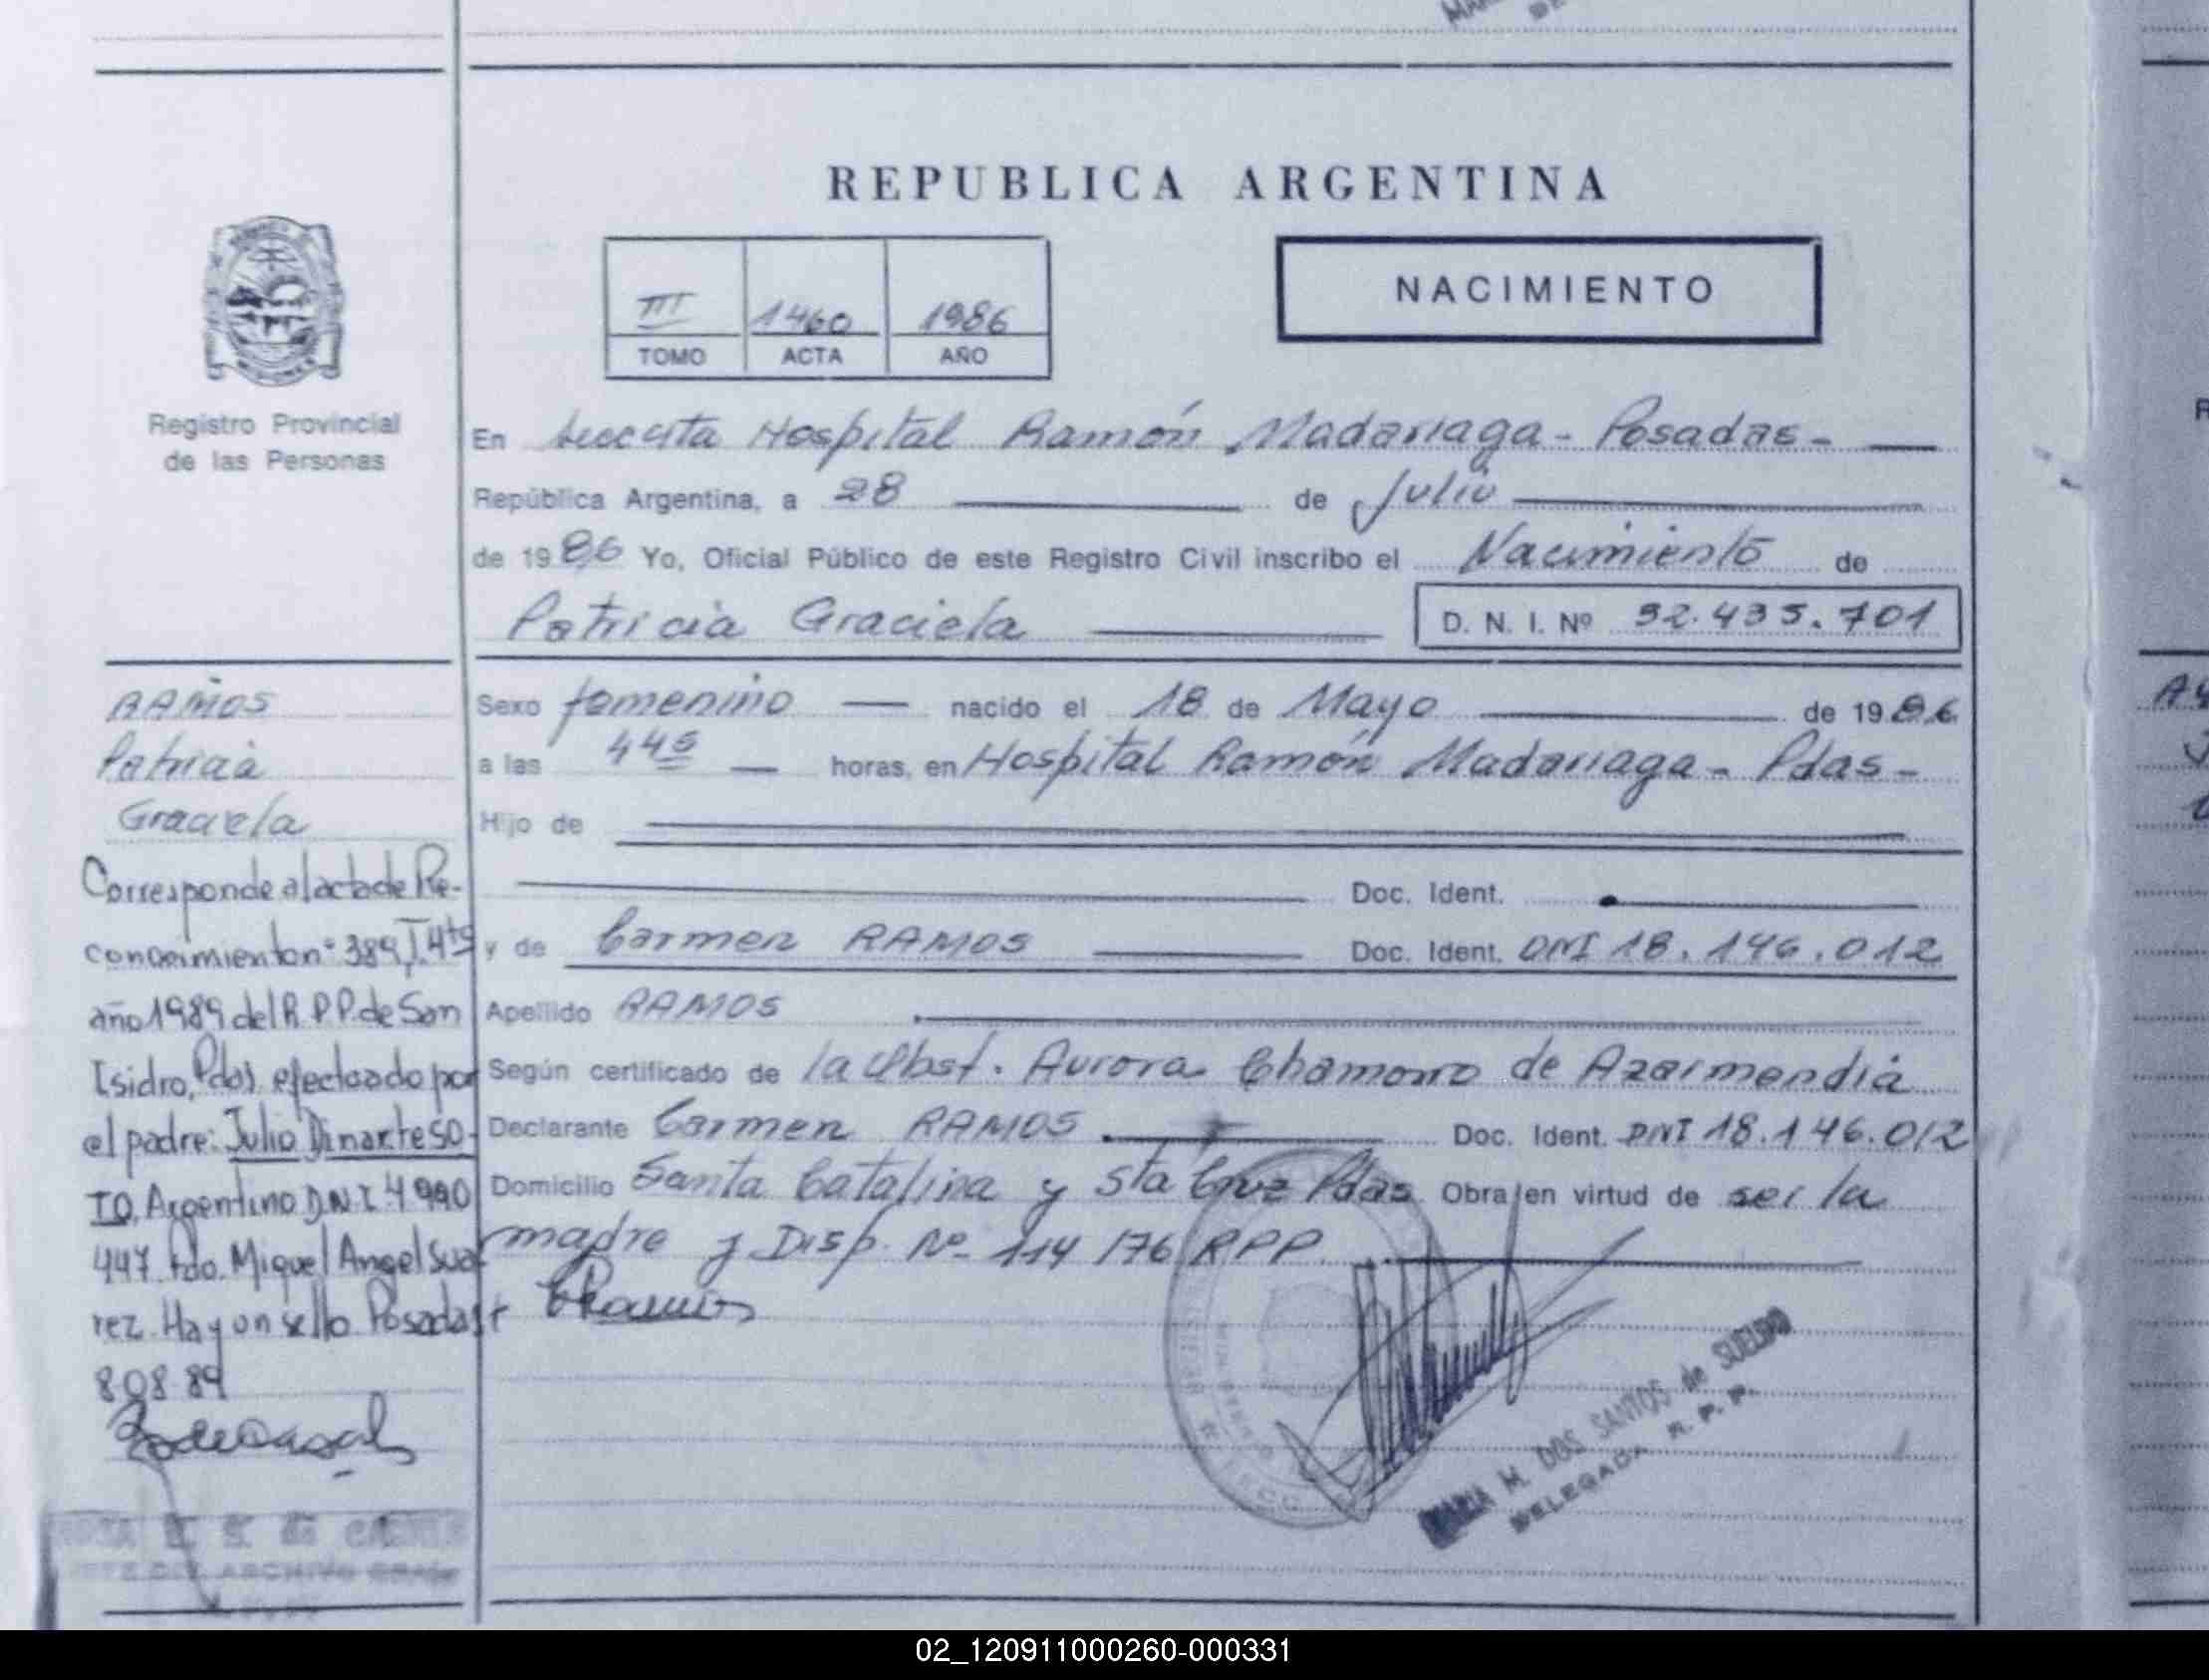 REPUBLICA ARGENTINA
III 1460 1986
TOMO ACTA AÑO
NACIMIENTO
Registro Provincial
de las Personas
En Hospital Ramón Madariaga - Posadas -
República Argentina, a 28 de Julio
de 1986 Yo, Oficial Público de este Registro Civil inscribo el Nacimiento de
Patricia Graciela D. N. I. Nº 32.435.701
RAMOS
Patricia
Graciela
Corresponde al acta de Re-
conocimiento nº 389, T. 4to
año 1989 del R.P.P. de San
Isidro, Pdas efectuado por
el padre: Julio Dinarte SO-
TO, Argentino D.N.I. 4990
447 fdo. Miguel Angel Sua
rez. Hay un sello Posadas
8 08 89
Sexo femenino nacido el 18 de Mayo de 1986
a las 4 45 horas, en Hospital Ramón Madariaga - Pdas -
Hijo de
Doc. Ident.
y de Carmen RAMOS Doc. Ident. DNI 18.146.012
Apellido RAMOS
Según certificado de la Obst. Aurora Chamorro de Azarmendia
Declarante Carmen RAMOS Doc. Ident. DNI 18.146.012
Domicilio Santa Catalina y Sta Cruz Pdas Obra en virtud de ser la
madre y Disp. Nº 114/76 RPP
CRamos
MARIA M. DOS SANTOS de SUELDO
DELEGADA R. P. P.
02_120911000260-000331